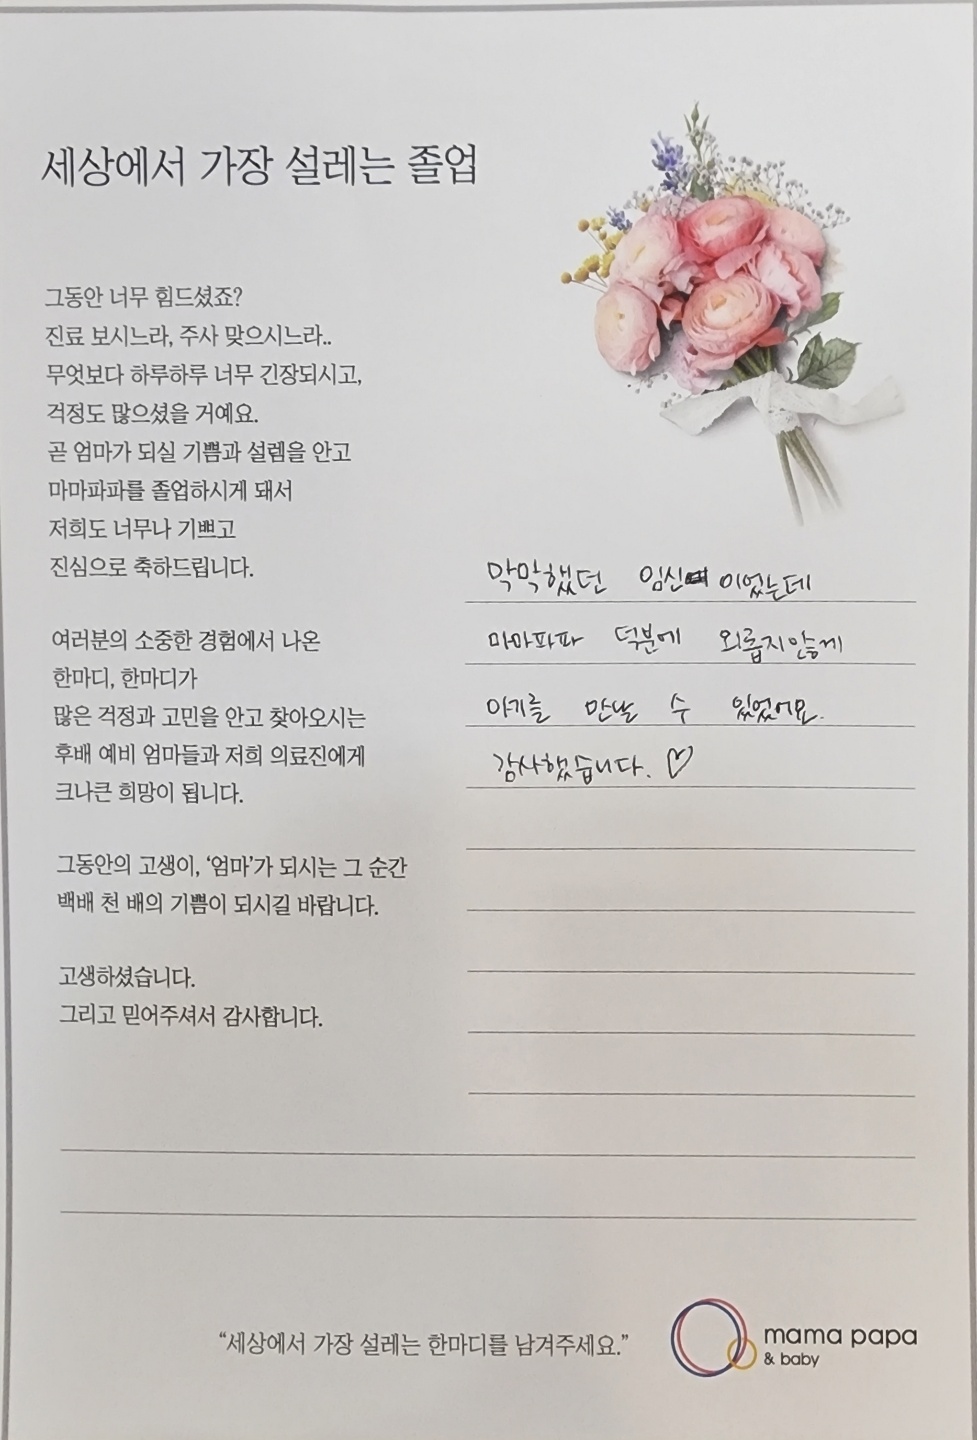 세상에서 가장 설레는 졸업
그동안 너무 힘드셨죠?
진료 보시느라, 주사 맞으시느라..
무엇보다 하루하루 너무 긴장되시고,
걱정도 많으셨을 거예요.
곧 엄마가 되실 기쁨과 설렘을 안고
마마파파를 졸업하시게 돼서
저희도 너무나 기쁘고
진심으로 축하드립니다.
여러분의 소중한 경험에서 나온
한마디, 한마디가
많은 걱정과 고민을 안고 찾아오시는
후배 예비 엄마들과 저희 의료진에게
크나큰 희망이 됩니다.
그동안의 고생이, ‘엄마’가 되시는 그 순간
백배 천 배의 기쁨이 되시길 바랍니다.
고생하셨습니다.
그리고 믿어주셔서 감사합니다.
막막했던 임신 이었는데
마마파파 덕분에 외롭지않게
아기를 만날 수 있었어요.
감사했습니다. ♡
“세상에서 가장 설레는 한마디를 남겨주세요.”
mama papa
& baby